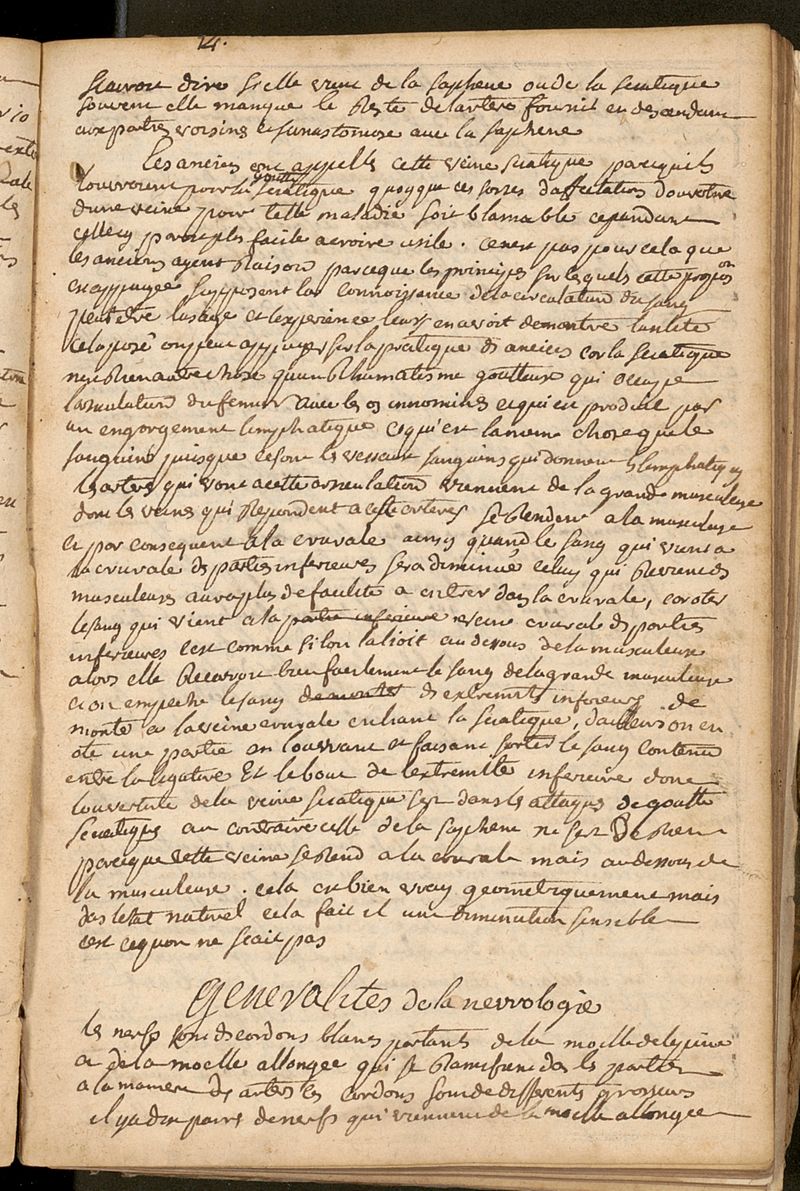 14.
scavoir dire si elle vient de la saphene ou de la sciatique
souvent elle manque le Reste de lartere fournit en descendant
aux parties voisines et sanastomose avec la saphene
les anciens ont appellé cette veine sciatique parcequils
louvroient pour la goutte sciatique quoyque ces sortes daffectations douvrir
dune veine pour telle maladie soit blamable cependant
celle cy paroit plus facile a croire utile. ce nest pas pour cela que
les anciens ayent Raison parceque les principes sur lesquels cette proposon
est appuyée supposent la connoissance de la circulation du sang
peut etre lusage et lexperience leurs en avoit demontré lutilité
cela posé on peut appuyer sur la pratique des anciens car la sciatique
nest Rien autre chose quun Rhumatisme goutteux qui occupe
larticulation du femur avec les os innominés et qui est produit par
un engorgement limphatique et qui est la meme chose que le
sanguin puisque ce sont les vesseaux sanguins qui donnent les limphatiques
les arteres qui vont a cette articulation viennent de la grande musculeuse
dont les veines qui Respondent a cette arteres se Rendent a la musculeuse
et par consequent a la crurale ainsy quand le sang qui vient a
la crurale des parties inferieures sera diminué celuy qui Revient des
musculeuses aura plus de facilité a entrer dans la crurale, car oter
le sang qui vient a la partie inferieure veine crurale des parties
inferieures cest comme si lon la lioit au dessous de la musculeuse
alors elle Recevroit bien facilement le sang de la grande musculeuse
et on empeche le sang de monter des extremités inferieures de
monté a la veine crurale en liant la sciatique, dailleurs on en
oté une partie en louvrant et faisant sortir le sang contenu
entre la ligature Et le bout de lextremité inferieure donc
louverture de la veine sciatique sert dans les attaques de goutte
sciatique au contraire celle de la saphene ne sert de Rien
parceque cette veine se Rend a la crurale mais au dessous de
la musculeuse. cela est bien vray geometriquement mais
dans letat naturel cela fait il une diminution sensible
cest cequon ne scait pas
Generalites de la nevrologie
les nerfs sont des cordons blancs partants de la moelle delepine
et de la moelle allongée qui se Ramifient dans les parties
a la maniere des arteres les cordons sont de differents grosseurs
il y a dix paires de nerfs qui viennent de la moelle allongée